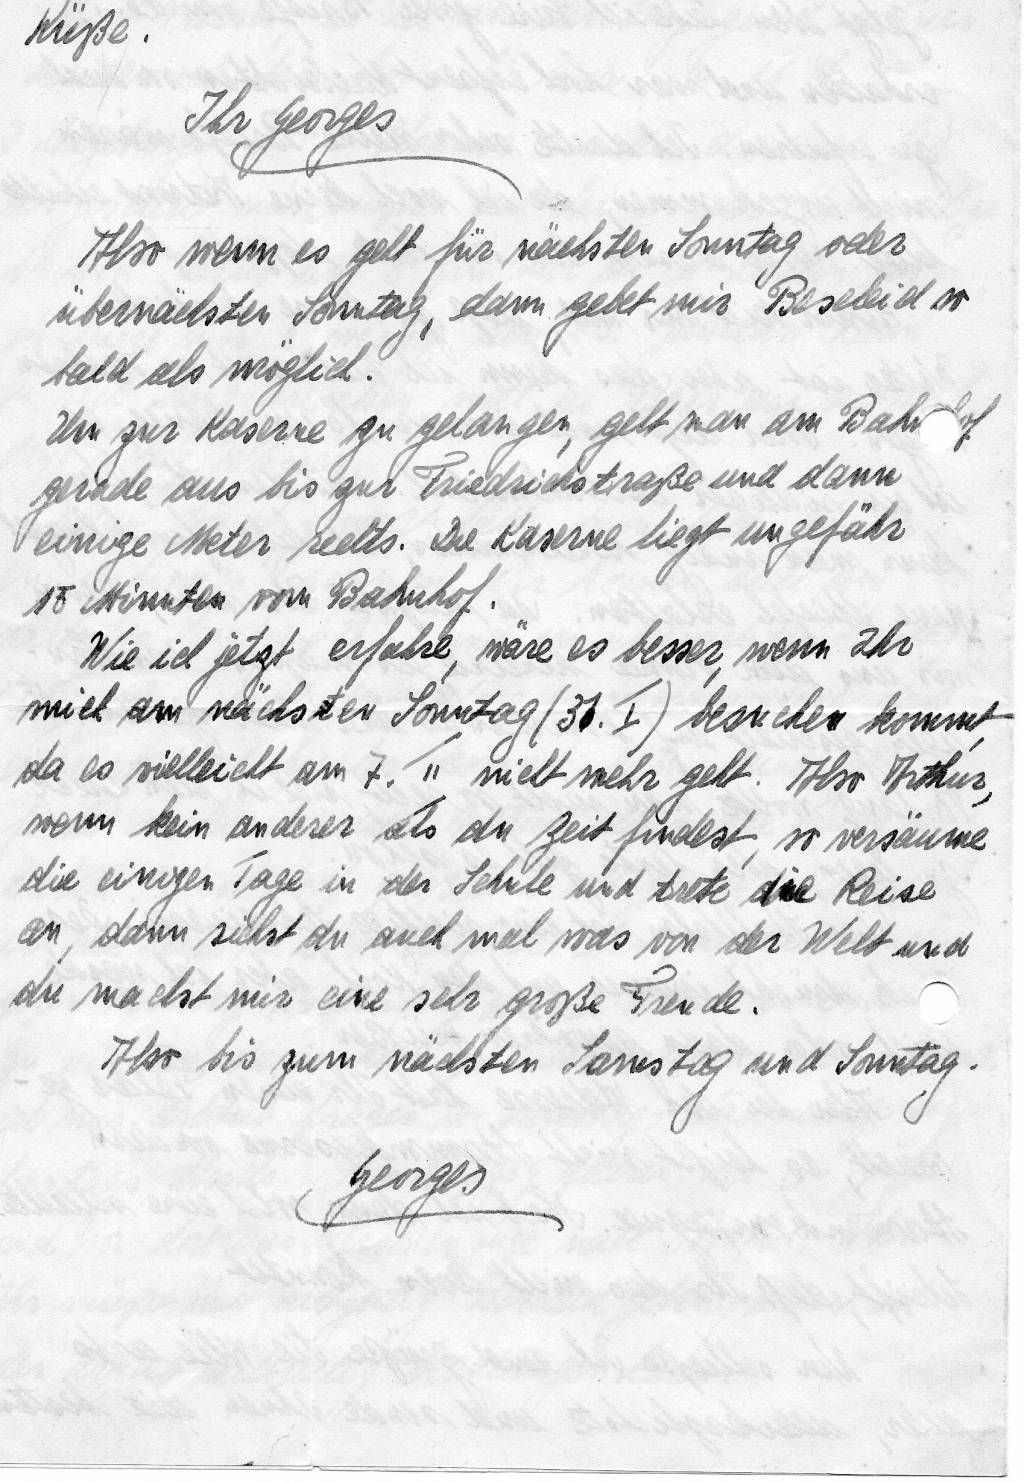 Küße.
Ihr Georges
Also wenn es geht für nächsten Sonntag oder
übernächsten Sonntag, dann gebet mir Bescheid so
bald als möglich.
Um zur Kaserne zu gelangen, geht man am Bahnhof
gerade aus bis zur Friedrichstraße und dann
einige Meter rechts. Die Kaserne liegt ungefähr
Minuten vom Bahnhof.
Wie ich jetzt erfahre, wäre es besser, wenn Ihr
mich am nächsten Sonntag (31. I) besuchen kommt,
da es vielleicht am 7. II nicht mehr geht. Also Arthur,
wenn kein anderer als du Zeit findest, so versäume
die einigen Tage in der Schule und trete die Reise
an, dann siehst du auch mal was von der Welt und
du machst mir eine sehr große Freude.
Also bis zum nächsten Samstag und Sonntag.
Georges